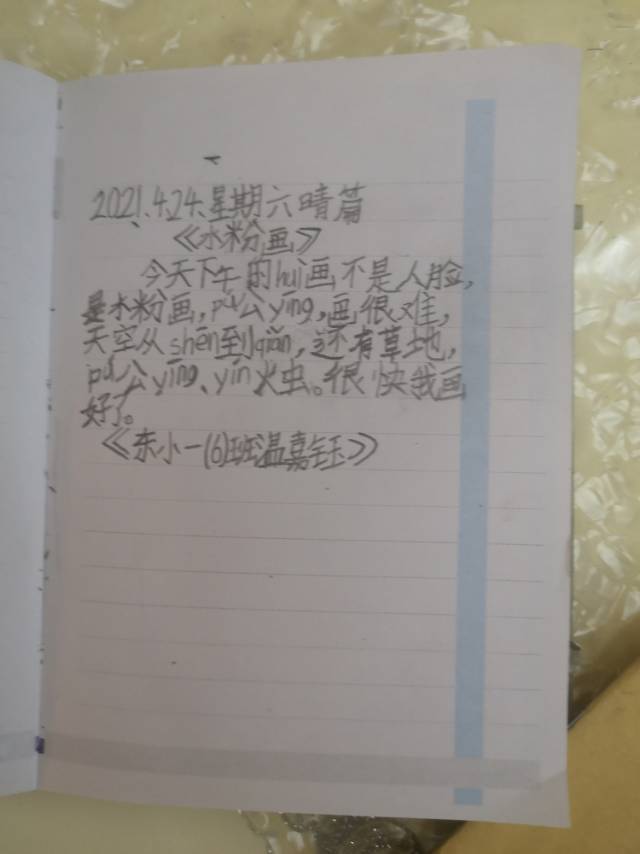 2021.4.24.星期六晴篇
《水粉画》
今天下午的huì画不是人脸,
是水粉画,pú公yīng,画很难,
天空从shēn到qiǎn,还有草地,
pú公yīng、yín火虫。很快我画
好了。
《东小一(6)班温嘉钰》